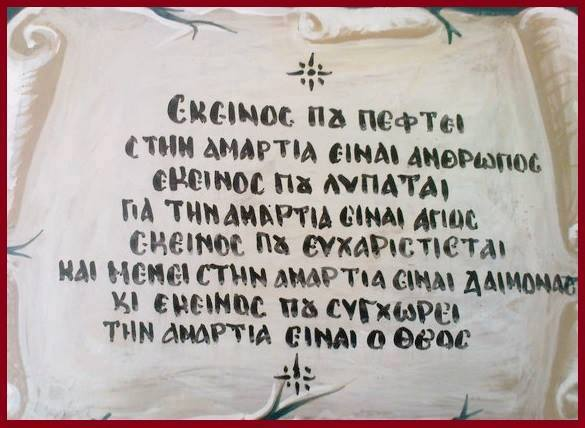 ΕΚΕΙΝΟΣ ΠȢ ΠΕΦΤΕΙ
ΣΤΗΝ ΑΜΑΡΤΙΑ ΕΙΝΑΙ ΑΝΘΡΩΠΟΣ
ΕΚΕΙΝΟΣ ΠȢ ΛΥΠΑΤΑΙ
ΓΙΑ ΤΗΝ ΑΜΑΡΤΙΑ ΕΙΝΑΙ ΑΓΙΟΣ
ΕΚΕΙΝΟΣ ΠȢ ΕΥΧΑΡΙΣΤΙΕΤΑΙ
ΚΑΙ ΜΕΝΕΙ ΣΤΗΝ ΑΜΑΡΤΙΑ ΕΙΝΑΙ ΔΑΙΜΟΝΑΣ
ΚΙ ΕΚΕΙΝΟΣ ΠȢ ΣΥΓΧΩΡΕΙ
ΤΗΝ ΑΜΑΡΤΙΑ ΕΙΝΑΙ Ο ΘΕΟΣ